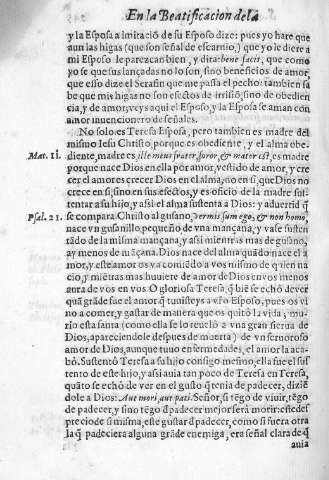 En la Beatificacion de la
y la Esposa a imitaciõ de su Esposo dize: pues yo hare que
aun las higas (que son señal de escarnio) que yo le diere a
mi Esposo le parezcan bien, y dira: bene facit, que como
yo se que sus lançadas no lo son, sino beneficios de amor,
que esso dize el Serafin que me passa el pecho: tambien sa
be que mis higas no son efectos de irrisiõ, sino de obedien
cia, y de amor, veys aqui el Esposo, y la Esposa se aman con
amor inuencionero de señales.
No solo es Teresa Esposa, pero tambien es madre del
mismo Iesu Christo, porque es obediente, y el alma obe
Mat. 12. diente, madre es, ille meus frater, soror, & mater est, es madre
porque nace Dios en ella por amor, vestido de amor, y cre
cer el amor es crecer Dios en el alma, no en si, que Dios no
crece en si, sino en sus efectos, y es oficio de la madre sus-
tentar a su hijo, y assi el alma sustenta a Dios: y aduertid q̃
Psal. 21. se compara Christo al gusano, vermis sum ego, & non homo,
nace vn gusanillo pequeño de vna mançana, y va se susten
tãdo de la misma mançana, y assi mientras mas de gusano,
ay menos de mãçana. Dios nace del alma quãdo nace el a
mor, y este amor os va comiẽdo a vos mismo de quien na
cio, y miẽtras mas huuiere de amor de Dios en vos menos
aura de vos en vos. O gloriosa Teresa, q̃ biẽ se echò de ver
quã grãde fue el amor q̃ tuuisteys a vr̃o Esposo, pues os vi
no a comer, y gastar de manera que os quitò la vida; mu-
rio esta santa (como ella se lo reuelò a vna gran sierua de
Dios, apareciendole despues de muerta) de vn feruoroso
amor de Dios, aunque tuuo enfermedades, el amor la aca
bò. Sustentò Teresa a su hijo consigo mesmo, ella fue el sus
tento de este hijo, y assi auia tan poco de Teresa en Teresa,
quãto se echò de ver en el gusto q̃ tenia de padecer, diziẽ
dole a Dios: Aut mori, aut pati. Señor, si tẽgo de viuir, tẽgo
de padecer, y sino tẽgo d̃ padecer mejor serà morir: este des
precio de si misma, este gustar d̃ padecer, como si fuera otra
la q̃ padeciera alguna grãde enemiga, era señal clara de q̃
auia